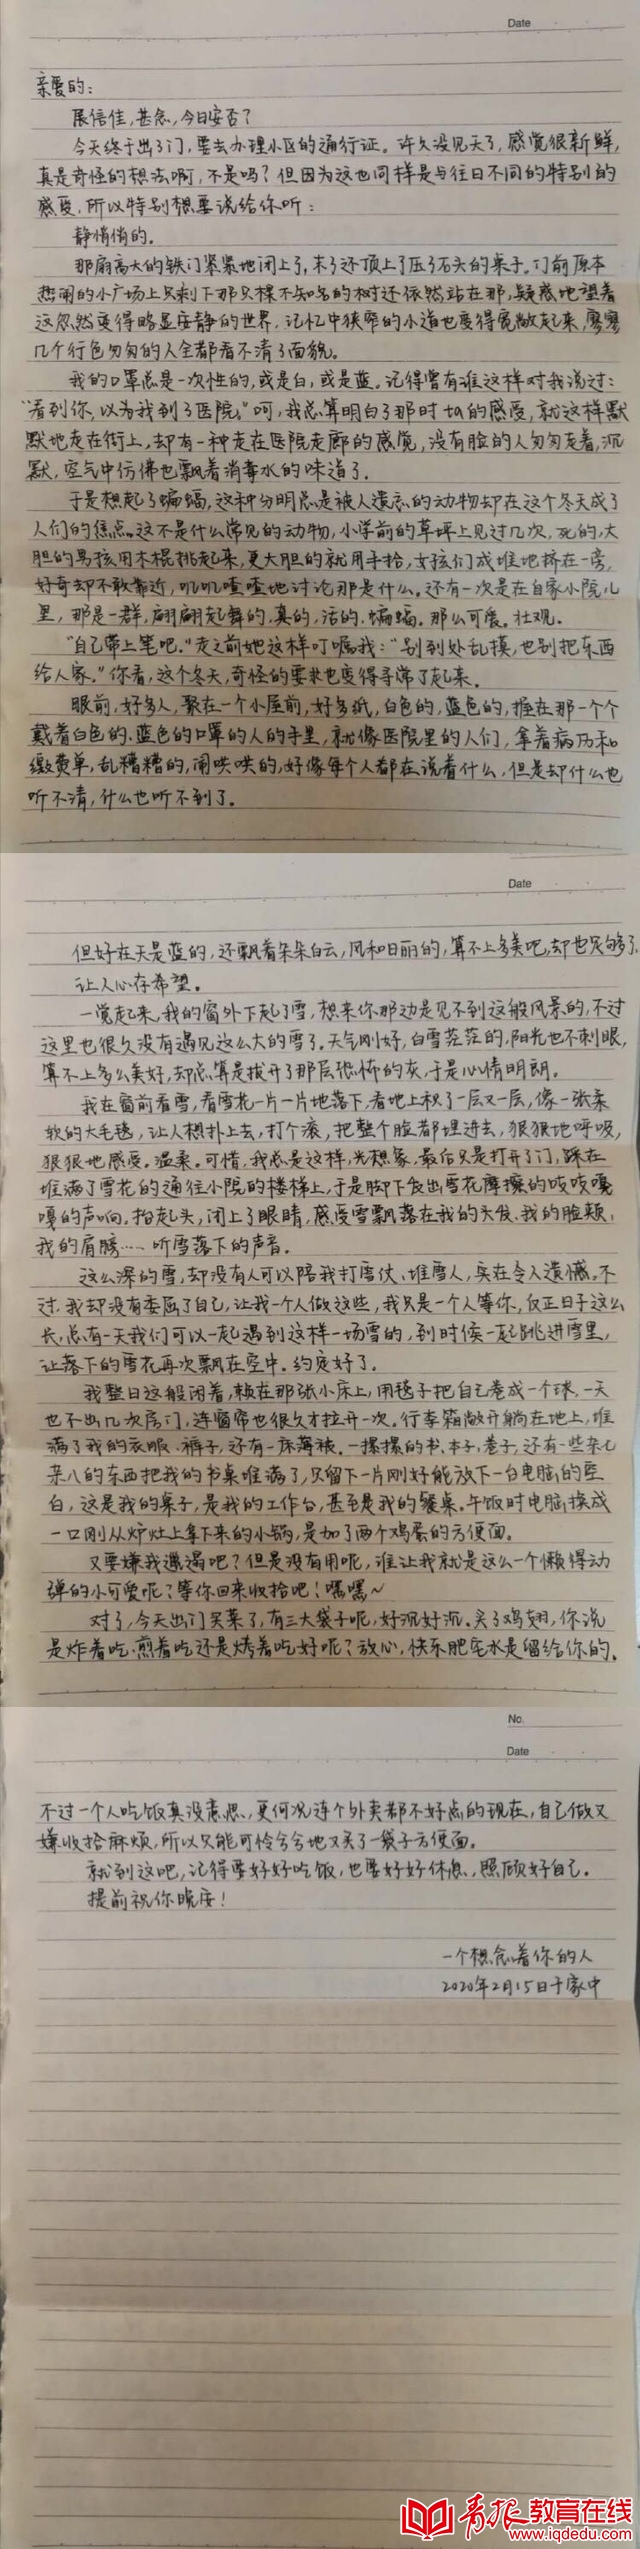 Date
亲爱的：
展信佳，甚念，今日安否？
今天终于出了门，要去办理小区的通行证。许久没见天了，感觉很新鲜，
真是奇怪的想法啊，不是吗？但因为这也同样是与往日不同的特别的
感受，所以特别想要说给你听：
静悄悄的。
那扇高大的铁门紧紧地闭上了，末了还顶上了压了石头的桌子。门前原本
热闹的小广场上只剩下那只棵不知名的树还依然站在那，疑惑地望着
这忽然变得略显安静的世界，记忆中狭窄的小道也变得宽敞起来，寥寥
几个行色匆匆的人全都看不清了面貌。
我的口罩总是一次性的，或是白，或是蓝。记得曾有谁这样对我说过：
“看到你，以为我到了医院。”呵，我总算明白了那时ta的感受，就这样默
默地走在街上，却有一种走在医院走廊的感觉，没有脸的人匆匆走着，沉
默，空气中仿佛也飘着消毒水的味道了。
于是想起了蝙蝠，这种分明总是被人遗忘的动物却在这个冬天成了
人们的焦点。这不是什么常见的动物，小学前的草坪上见过几次，死的，大
胆的男孩用木棍挑起来，更大胆的就用手拾，女孩们成堆地挤在一旁，
好奇却不敢靠近，叽叽喳喳地讨论那是什么。还有一次是在自家小院儿
里，那是一群，翩翩起舞的，真的，活的，蝙蝠。那么可爱。壮观。
“自己带上笔吧。”走之前她这样叮嘱我：“别到处乱摸，也别把东西
给人家。”你看，这个冬天，奇怪的要求也变得寻常了起来。
眼前，好多人，聚在一个小屋前，好多纸，白色的，蓝色的，握在那一个个
戴着白色的、蓝色的口罩的人的手里，就像医院里的人们，拿着病历和
缴费单，乱糟糟的，闹哄哄的，好像每个人都在说着什么，但是却什么也
听不清，什么也听不到了。
Date
但好在天是蓝的，还飘着朵朵白云，风和日丽的，算不上多美吧，却也足够了，
让人心存希望。
一觉起来，我的窗外下起了雪，想来你那边是见不到这般风景的，不过
这里也很久没有遇见这么大的雪了。天气刚好，白雪茫茫的，阳光也不刺眼，
算不上多么美好，却总算是拔开了那层恐怖的灰，于是心情明朗。
我在窗前看雪，看雪花一片一片地落下，看地上积了一层又一层，像一张柔
软的大毛毯，让人想扑上去，打个滚，把整个脸都埋进去，狠狠地呼吸，
狠狠地感受。温柔。可惜，我总是这样，光想象，最后只是打开了门，踩在
堆满了雪花的通往小院的楼梯上，于是脚下发出雪花摩擦的吱吱嘎
嘎的声响。抬起头，闭上了眼睛，感受雪飘落在我的头发、我的脸颊，
我的肩膀……听雪落下的声音。
这么深的雪，却没有人可以陪我打雪仗、堆雪人，实在令人遗憾。不
过，我却没有委屈了自己，让我一个人做这些，我只是一个人等你，反正日子这么
长，总有一天我们可以一起遇到这样一场雪的，到时候一起跳进雪里，
让落下的雪花再次飘在空中。约定好了。
我整日这般闲着，赖在那张小床上，用毯子把自己卷成一个球，一天
也不出几次房门，连窗帘也很久才拉开一次。行李箱敞开躺在地上，堆
满了我的衣服、裤子，还有一床薄被。一摞摞的书、本子、卷子，还有一些杂七
杂八的东西把我的书桌堆满了，只留下一片刚好能放下一台电脑的空
白，这是我的桌子，是我的工作台，甚至是我的餐桌。午饭时电脑换成
一口刚从炉灶上拿下来的小锅，是加了两个鸡蛋的方便面。
又要嫌我邋遢吧？但是没有用呢，谁让我就是这么一个懒得动
弹的小可爱呢？等你回来收拾吧！嘿嘿~
对了，今天出门买菜了，有三大袋子呢，好沉好沉。买了鸡翅，你说
是炸着吃、煎着吃还是烤着吃好呢？放心，快乐肥宅水是留给你的。
No.
Date
不过一个人吃饭真没意思，更何况连个外卖都不好点的现在，自己做又
嫌收拾麻烦，所以只能可怜兮兮地又买了一袋子方便面。
就到这吧，记得要好好吃饭，也要好好休息，照顾好自己。
提前祝你晚安！
一个想念着你的人
2020年2月15日于家中
青报教育在线
www.iqdedu.com